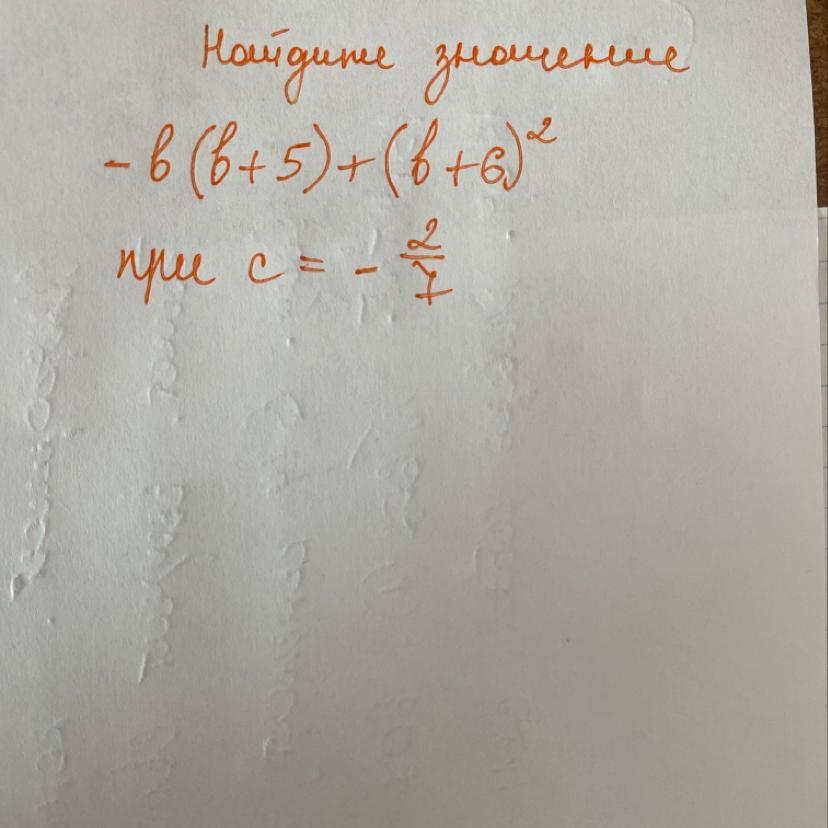 Найдите значение
-в(в+5)+(в+6)²
при c = - 2/7